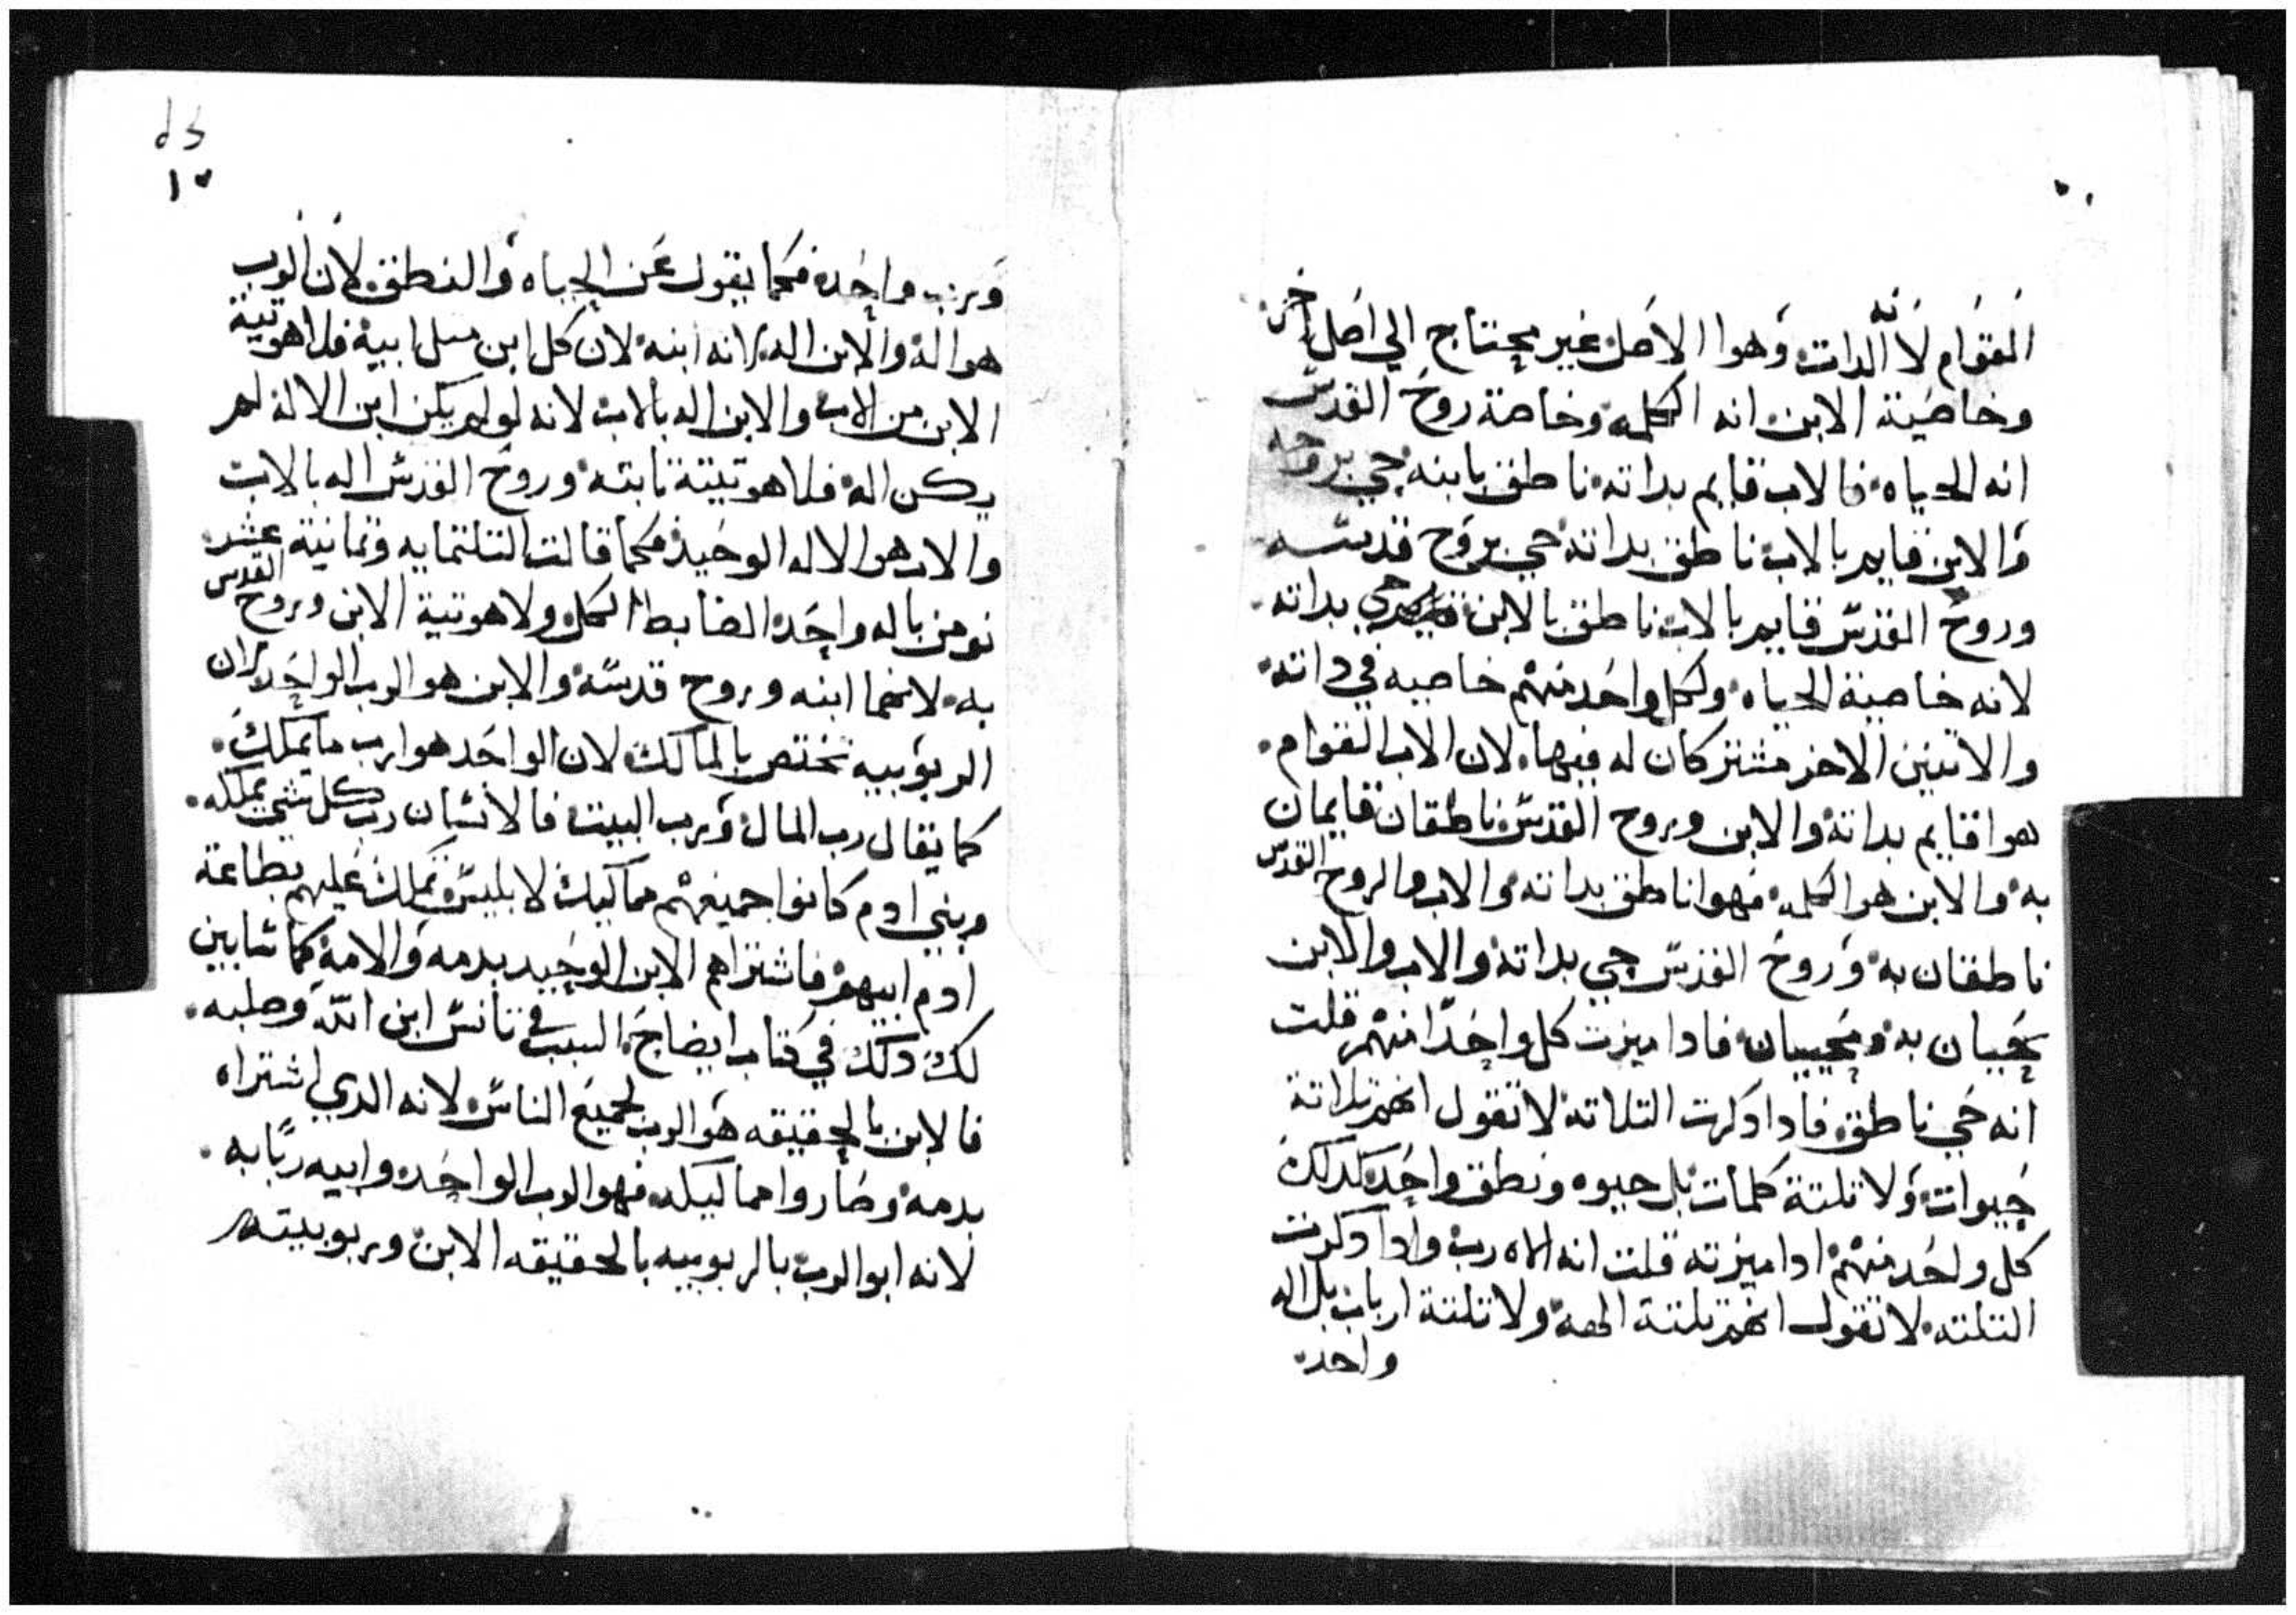 القوام لانه الدات وهوا الاصل غير محتاج الي اصل اخر
وخاصية الابن انه الكلمه وخاصة روح القدس
انه الحياه فالاب قايم بداته ناطق بابنه حي بروحه
والابن قايم بالاب ناطق بداته حي بروح قدسه
وروح القدس قايم بالاب ناطق بالابن حي بداته
لانه خاصية الحياه ولكل واحد منهم خاصيه في داته
والاتنين الاخر مشتركان له فيها لان الاب القوام
هوا قايم بداته والابن وروح القدس ناطقان قايمان
به والابن هو الكلمه فهوا ناطق بداته والاب والروح القدس
ناطقان به وروح القدس حي بداته والاب والابن
يحييان به ومحييان فادا ميزت كل واحدا منهم قلت
انه حي ناطق فادا دكرت التلاته لا تقول انهم تلاتة
حيوات ولا تلتة كلمات بل حيوه ونطق واحد كدلك
كل واحد منهم ادا ميزته قلت انه الاه رب وادا دكرت
التلته لا تقول انهم تلتة الهه ولا تلتة ارباب بل اله
واحد
١٠
ورب واحد فكما يقول عن الحياه والنطق لان الرب
هو اله والابن اله لانه ابنه لان كل ابن متل ابيه فلاهوتية
الابن من الاب والابن اله بالاب لانه لو لم يكن ابن الاله لم
يكن اله فلاهوتيته تابته وروح القدس اله بالاب
والاب هو الاله الوحيد فكما قالت التلتمايه وتمانية عشر
نومن باله واحد الضابط الكل ولاهوتية الابن وروح القدس
به لانهما ابنه وروح قدسه والابن هو الرب الواحد لان
الربوبيه تختص بالمالك لان الواحد هوا رب ما يملك
كما يقال رب المال ورب البيت فالانسان رب كل شي يملكه
وبني ادم كانوا جميعهم مماليك لابليس وتملك عليهم بطاعة
ادم ابيهم فاشتراهم الابن الوحيد بدمه والامه كما سابين
لك دلك في كتاب ايضاح السبب في تانس ابن الله وصلبه
فالابن بالحقيقه هو الرب لجميع الناس لانه الدي اشتراه
بدمه وصاروا مماليكه فهو الرب الواحد وابيه ربا به
لانه ابو الرب بالربوبيه بالحقيقه الابن وربوبيته